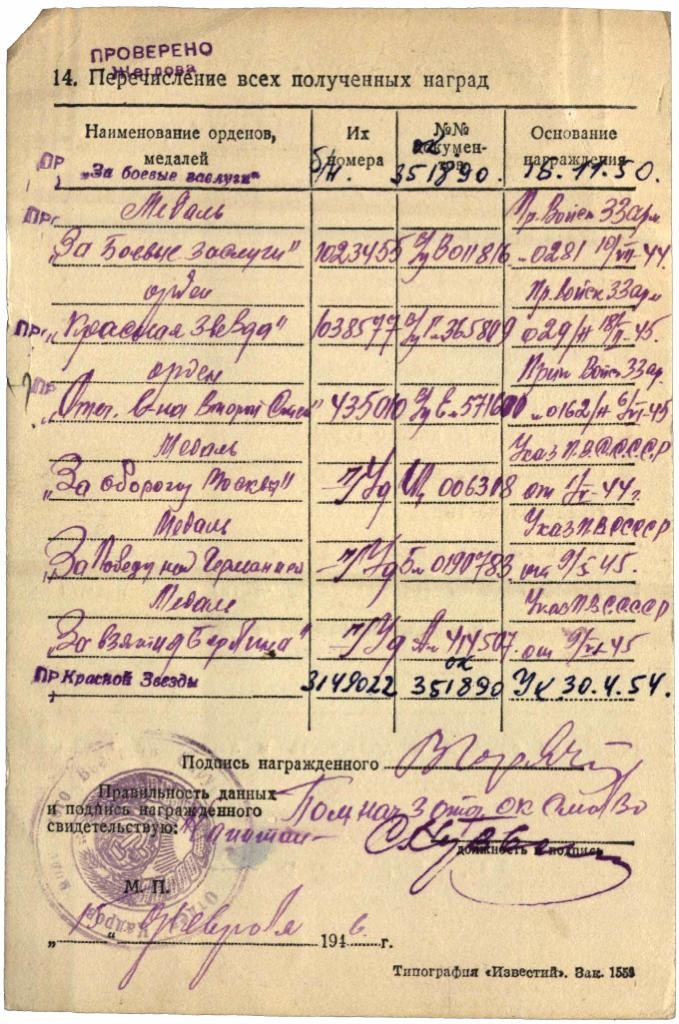 ПРОВЕРЕНО
Жеглова
14. Перечисление всех полученных наград
Наименование орденов, медалей Их номера №№ документов Основание награждения
ПР „За боевые заслуги“ б/н. ок 351890. 15.11.50.
ПР Медаль Пр. Войск 33 арм
„За Боевые Заслуги" 1023455 Уд В 011816 0281 10/VII-44.
орден Пр. Войск 33 арм
ПР „Красная Звезда" 1038577 365809 029/н 18/II-45.
орден Прик Войск 33 ар.
ПР „Отеч. в-на Второй Степ" 435010 571600 0162/н 6/VI-45
Медаль Указ П.В.С.СССР
„За оборону Москвы" Уд 006318 от 1/V-44 г.
Медаль Указ П.В.С.СССР
„За Победу над Германией Уд 0190783. от 9/5 45.
Медаль Указ П.В.С.СССР
„За взятие Берлина" Уд 414507. от 9/VI-45
ПР Красной Звезды 3149022 ок 351890 Ук 30.4.54.
Подпись награжденного
Правильность данных
и подпись награжденного
свидетельствую:
Пом нач 3 отд ОК
Капитан
должность и подпись
М. П.
„15" февраля 1946 г.
Типография «Известий». Зак. 1558